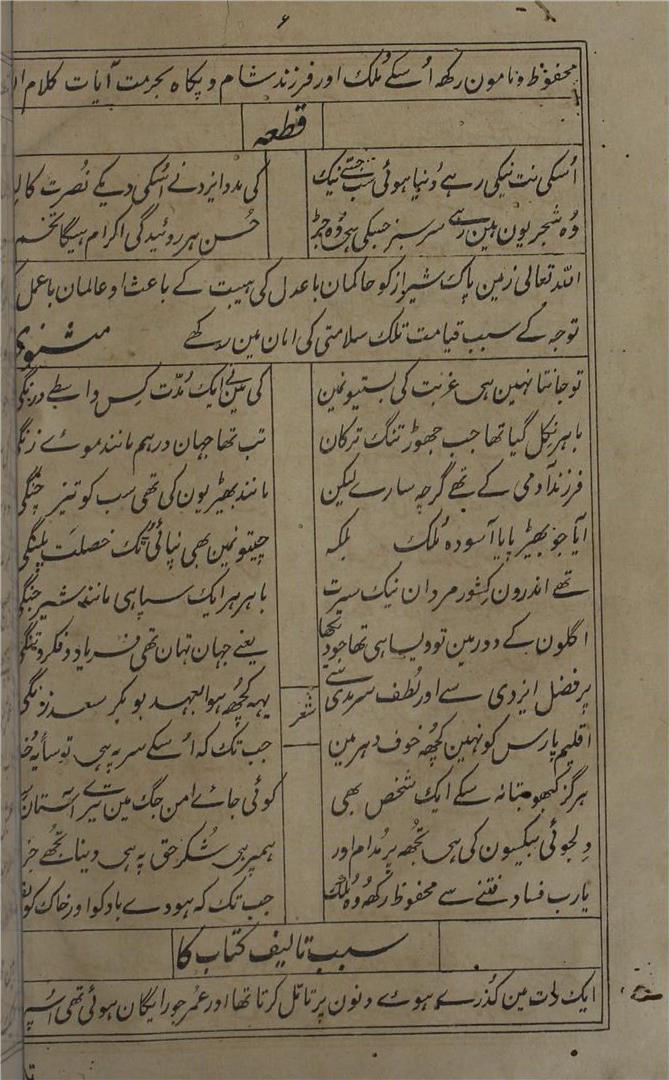 ۶
محفوظ و نامون رکھ اُسکے مُلک اور فرزند شام و پکاہ بحرمت آیات کلام
قطعہ
اُسکی نت نیکی رہے دُنیا ہوئی سب جتنے نیک کی مدد ایزد نے اُسکی دیکے نصُرت کا
وُہ شجر یون ہین رہے سرسبز جسکی ہی وُہ جڑ حُسن ہر روئیدگی اکرام ہیگا تخم
اللہ تعالی زمین پاک شیراز کو حاکمان باعدل کی ہیبت کے باعث او عالمان باعمل
توجہ کے سبب قیامت تلک سلامتی کی امان مین رکھے مثنوی
تو جانتا نہین ہی غربت کی بستیو نمین کی مینے ایک مُدّت کس واسطے درنگی
باہر نکل گیا تھا جب چھوڑ تنگ ترکان تب تھا جہان درہم مانند موے زنگی
فرزند آدمی کے تھے گرچہ سارے لیکن مانند بھیڑیون کی تھی سب کو تیز چنگی
آیا جو پھیڑ پایا آسودہ مُلک بلکہ چیتو نمین بھی نپائی ٹک خصلت پلنگی
تھے اندرون کِشور مردان نیک سیرت باہر ہر ایک سپاہی مانند شیر جنگی
اگلون کے دور مین تو ویسا ہی تھا جو دیکھا یعنے جہان تہان تھی فریاد و فکر و تنگی
پر فضل ایزدی سے اور لُطف سرمدی سے یہہ کچُھ ہوا بعہد بوبکر سعد زنگی
شعر
اقلیم پارس کو نہین کچُھ خوف دہر مین جب تک کہ اُسکے سر پہ ہی تو سایۂ
ہرگز کبھو بتا نہ سکے ایک شخص بھی کوئی جاے امن جگ مین تیرے آستان
دِلجوئی بیکسون کی ہی تجُھ پر مُدام اور ہمپر ہی شُکر حق پہ ہی دینا تجُھے
یارب فساد فتنے سے محفوظ رکھ وُہ مُلک جب تک کہ ہووے باد کو اور خاک کو
سبب تالیف کتاب کا
ایک رات مین گذرے ہوے دنون پر تامّل کرتا تھا اور عُمر جو رایگان ہوئی تھی